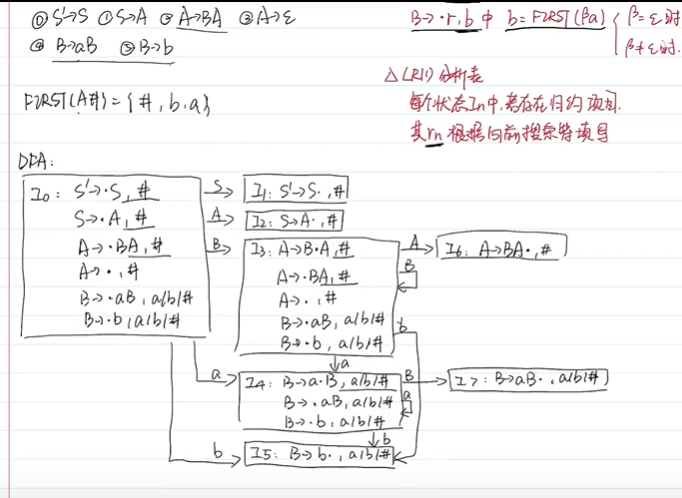 ⓪S'→S ①S→A ②A→BA ③A→ε
④ B→aB ⑤B→b
B→·r,b 中 b=FIRST(βa) { β=ε时
β≠ε时.
FIRST(A#)={#,b,a}
△LR(1)分析表
每个状态In中,若存在归约项目.
其rn根据向前搜索符填写
DFA:
I0: S'→·S,#
S→·A,#
A→·BA,#
A→·,#
B→·aB,a/b/#
B→·b,a/b/#
S I1: S'→S·,#
A I2: S→A·,#
B I3: A→B·A,#
A→·BA,#
A→·,#
B→·aB,a/b/#
B→·b,a/b/#
A I6: A→BA·,#
B
b
a
a I4: B→a·B,a/b/#
B→·aB,a/b/#
B→·b,a/b/#
B I7: B→aB·,a/b/#
a
b
b I5: B→b·,a/b/#